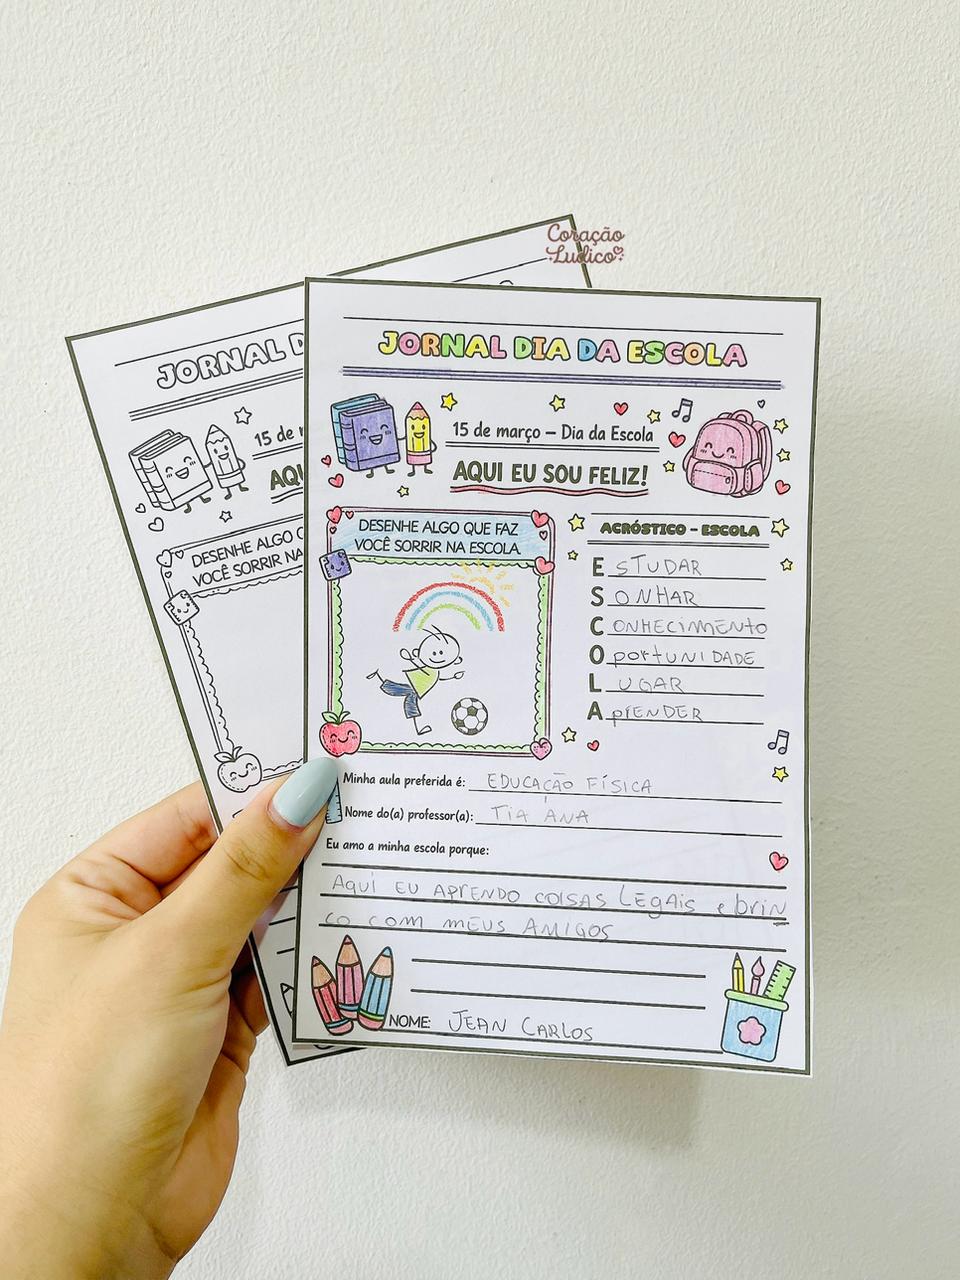 Coração
Lúdico
JORNAL D
15 de m
AQU
DESENHE ALGO Q
VOCÊ SORRIR NA
JORNAL DIA DA ESCOLA
15 de março – Dia da Escola
AQUI EU SOU FELIZ!
DESENHE ALGO QUE FAZ
VOCÊ SORRIR NA ESCOLA
ACRÓSTICO – ESCOLA
ESTUDAR
SONHAR
CONHECIMENTO
OPORTUNIDADE
LUGAR
APRENDER
Minha aula preferida é: EDUCAÇÃO FÍSICA
Nome do(a) professor(a): TIA ANA
Eu amo a minha escola porque:
Aqui EU APRENDO COISAS LEGAIS e brin
co com MEUS AMIGOS
NOME: JEAN CARLOS